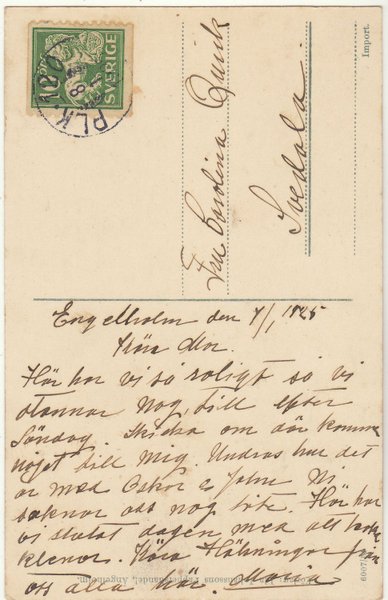 SVERIGE
PLK
Import.
Fru Carolina Quick
Svedala.
Engelholm den 7/1 1925
Kära Mor.
Här har vi så roligt så vi
stannar nog till efter
Söndag. Skicka om där kommer
något till mig. Undras hur det
är med Oskar & John Ni
saknar oss nog inte. Här har
vi slutat dagen med att
Kära Hälsningar från
oss alla här. Maria
Engelholm